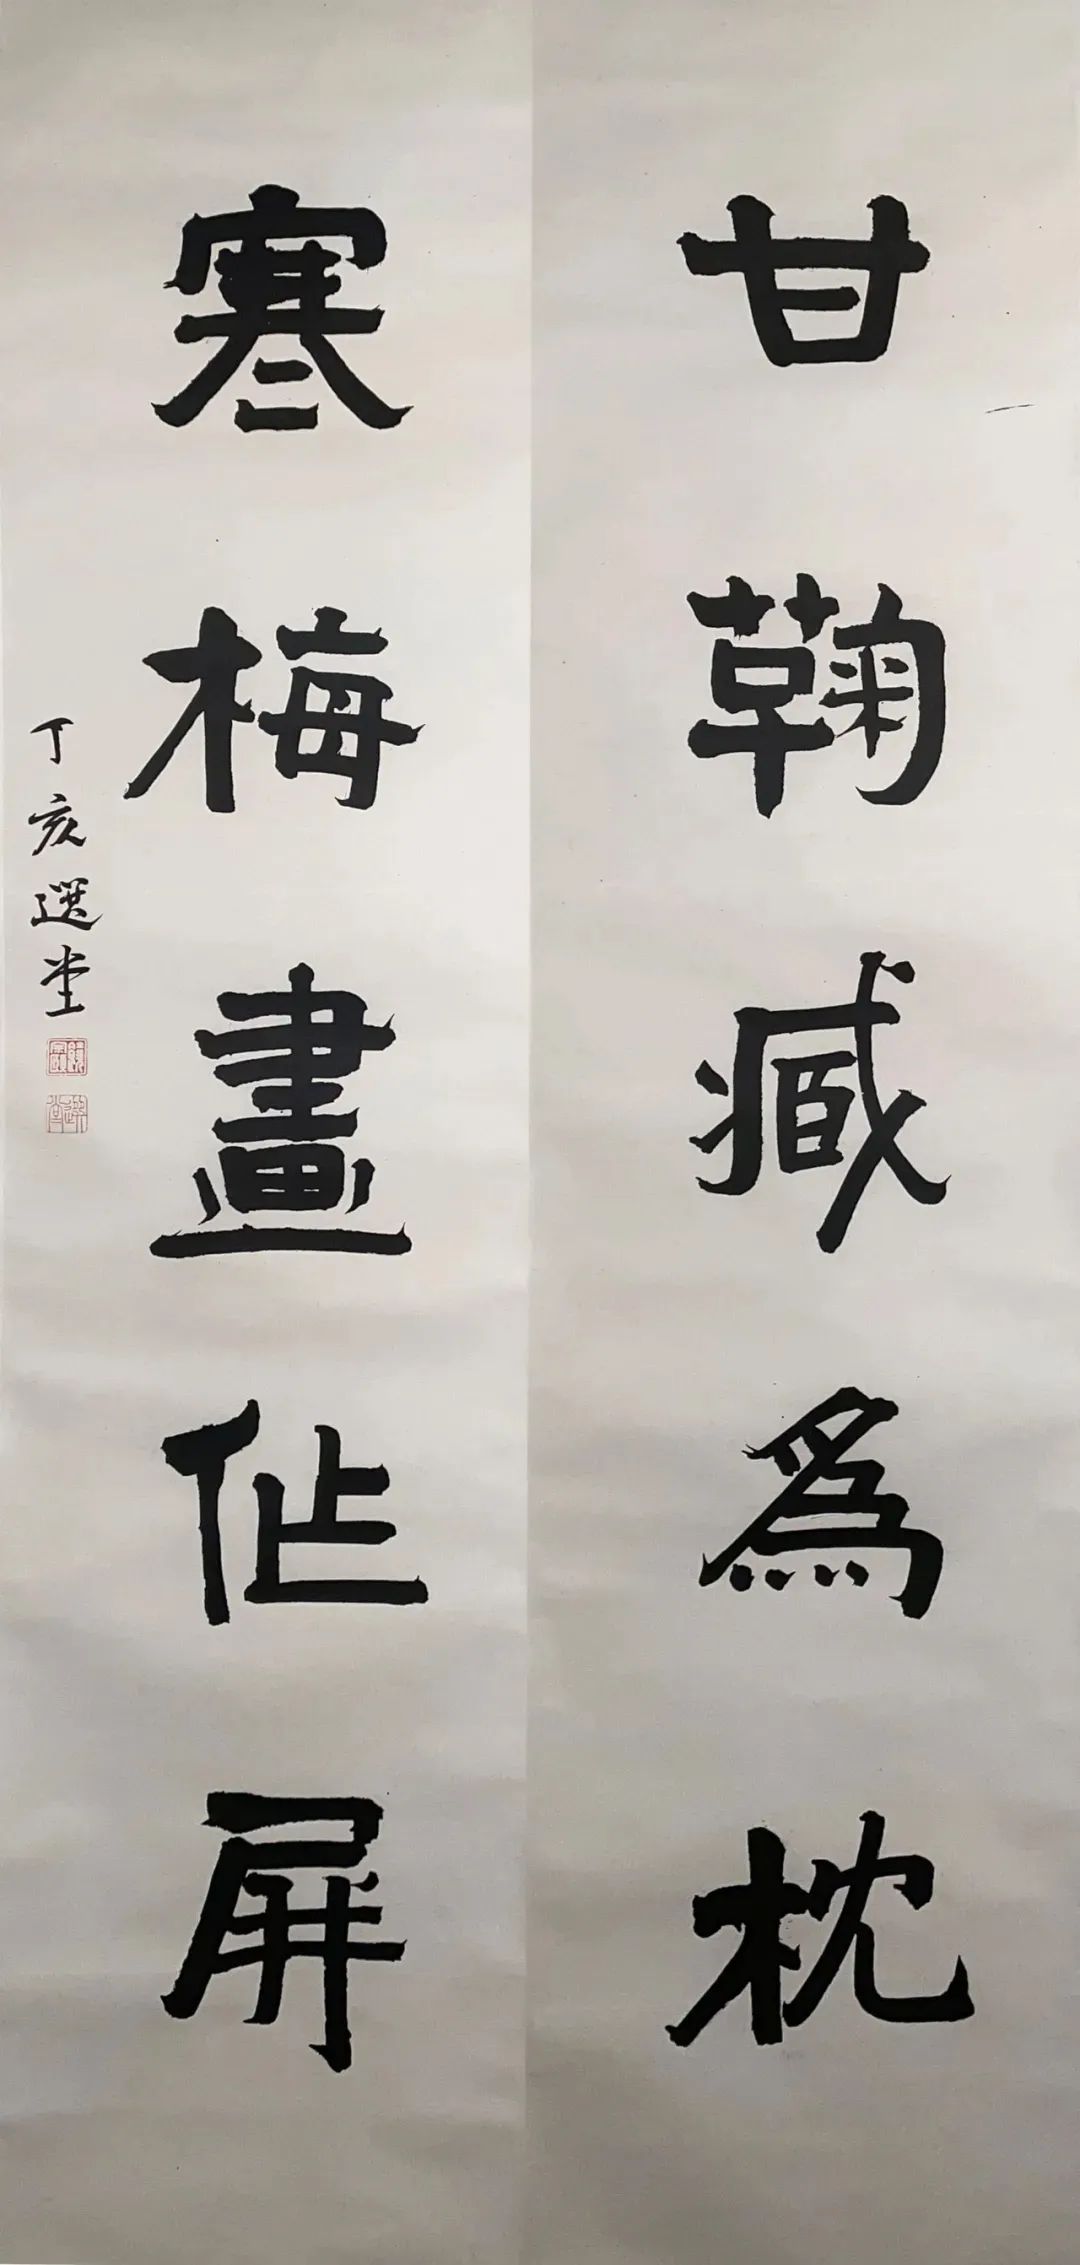 甘鞠臧爲枕
寒梅畫作屏
丁亥選堂